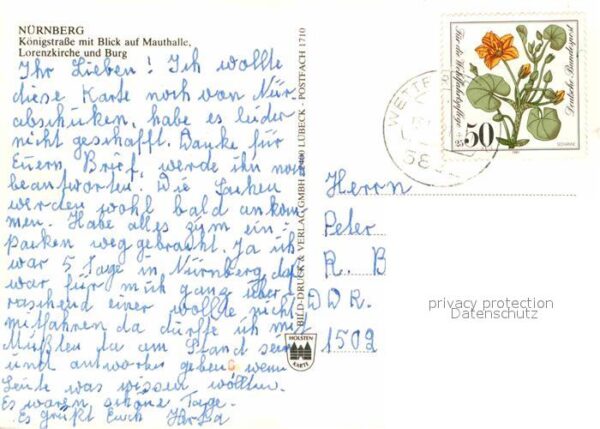 NÜRNBERG
Königstraße mit Blick auf Mauthalle,
Lorenzkirche und Burg
Ihr Lieben! Ich wollte
diese Karte noch von Nür.
abschicken, habe es leider
nicht geschafft. Danke für
Euern Brief, werde ihn noch
beantworten. Die Sachen
werden wohl bald ankom
men. Habe alles zum ein-
packen weg gebracht. Ja ich
war 5 Tage in Nürnberg, das
war für mich ganz über-
raschend einer wollte nicht
mitfahren da durfte ich mit
Mußten da am Stand sein
und antworten geben wenn
Leute was wissen wollten.
Es waren schöne Tage.
Es grüßt Euch
BILD-DRUCK & VERLAG GMBH 2400 LÜBECK · POSTFACH 1710
HOLSTEN
KARTE
Für die Wohlfahrtspflege
Deutsche Bundespost
50
+25
WETTE
58
Herrn
Peter
R. B
DDR.
1502
privacy protection
Datenschutz